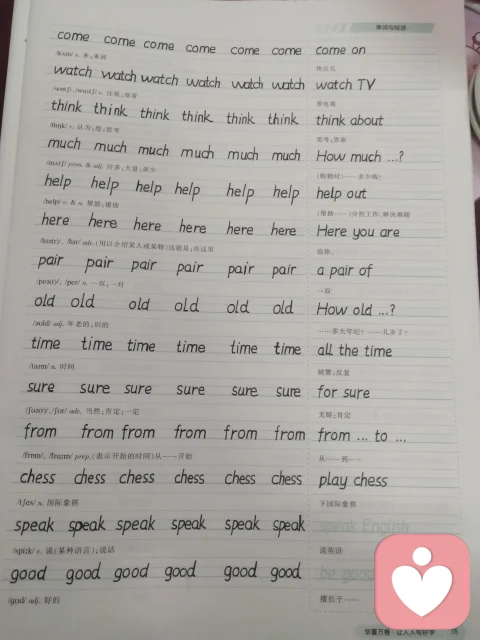 单词与短语
come come come come come come come on
/kʌm/ v. 来;来到 快点儿
watch watch watch watch watch watch watch TV
/wɒtʃ/,/wɑːtʃ/ v. 注视;观看 看电视
think think think think think think think about
/θɪŋk/ v. 认为;想;思考 思考;思索
much much much much much much How much ...?
/mʌtʃ/ pron. & adj. 许多;大量;多少 (购物时)……多少钱?
help help help help help help help out
/help/ v. & n. 帮助;援助 (帮助……)分担工作、解决难题
here here here here here here Here you are
adv.(用以介绍某人或某物)这就是;在这里 给你。
pair pair pair pair pair pair a pair of
n. 一双;一对 一双
old old old old old old How old ...?
/əʊld/ adj. 年老的;旧的 ……多大年纪?……几岁了?
time time time time time time all the time
/taɪm/ n. 时间 频繁;反复
sure sure sure sure sure sure for sure
adv. 当然;肯定;一定 无疑;肯定
from from from from from from from ... to ...
/frɒm/, /frʌm/ prep.(表示开始的时间)从……开始 从……到……
chess chess chess chess chess chess play chess
/tʃes/ n. 国际象棋 下国际象棋
speak speak speak speak speak speak speak English
/spiːk/ v. 说(某种语言);说话 说英语
good good good good good good be good
/gʊd/ adj. 好的 擅长于……
华夏万卷·让人人写好字